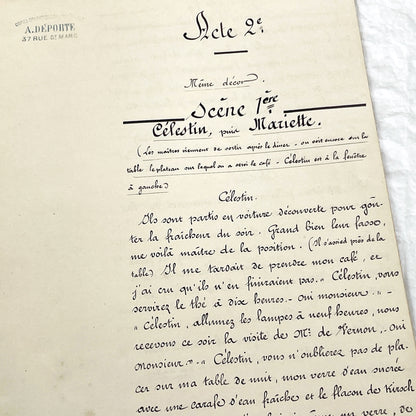 A. DÉPORTE
37 RUE ST MARC
Acte 2e
Même décor.
Scène 1ère
Célestin, puis Mariette.
(Les maîtres viennent de sortir après le dîner - on voit encore sur la
table le plateau sur lequel on a servi le café - Célestin est à la fenêtre
à gauche)
Célestin.
Ils sont partis en voiture découverte pour goû-
ter la fraîcheur du soir. Grand bien leur fasse,
me voilà maître de la position. (Il s'assied près de la
table) Il me tardait de prendre mon café, et
j'ai cru qu'ils n'en finiraient pas. "Célestin, vous
servirez le thé à dix heures. - oui monsieur. " -
"Célestin, allumez les lampes à neuf heures, nous
recevons ce soir la visite de Mr. de Vernon. - oui
monsieur." - "Célestin, vous n'oublierez pas de pla-
cer sur ma table de nuit, mon verre d'eau sucrée
avec une carafe d'eau fraîche et le flacon de Kirsch
sur verre, des